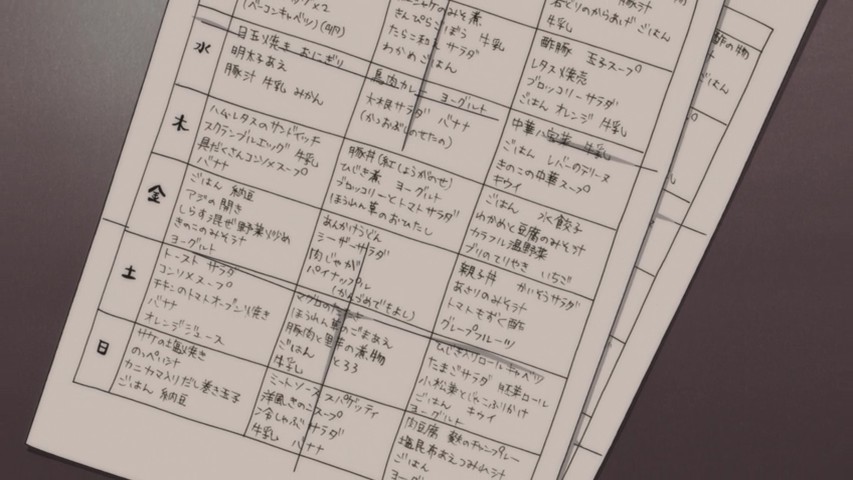 (ベーコンキャベツ)
きんぴらごぼう 牛乳
たらこ和え サラダ
わかめごはん
牛乳
水
目玉焼き おにぎり
明太子あえ
豚汁 牛乳 みかん
鳥肉カレー ヨーグルト
大根サラダ バナナ
(かつおぶしのせたの)
酢豚 玉子スープ
レタス焼売
ブロッコリーサラダ
ごはん オレンジ 牛乳
木
ハムレタスのサンドイッチ
スクランブルエッグ 牛乳
具だくさんコンソメスープ
バナナ
豚丼(紅しょうがのせ)
ひじき煮 ヨーグルト
ブロッコリーとトマトサラダ
ほうれん草のおひたし
中華 牛乳
ごはん レバーのテリーヌ
きのこの中華スープ
キウイ
金
ごはん 納豆
アジの開き
しらす混ぜ野菜炒め
きのこのみそ汁
ヨーグルト
あんかけうどん
シーザーサラダ
肉じゃが
パイナップル
(かんづめでもよし)
ごはん 水餃子
わかめと豆腐のみそ汁
カラフル温野菜
ブリのてりやき いちご
土
トースト サラダ
コンソメスープ
チキンのトマトオーブン焼き
バナナ
オレンジジュース
マグロの
ほうれん草のごまあえ
豚肉と里芋の煮物
ごはん とろろ
牛乳
親子丼 かいそうサラダ
あさりのみそ汁
トマトもずく酢
グレープフルーツ
日
サケの塩焼き
のっぺい汁
カニカマ入りだし巻き玉子
ごはん 納豆
ミートソーススパゲッティ
洋風きのこスープ
冷しゃぶ サラダ
牛乳 バナナ
ひじき入りロールキャベツ
たまごサラダ 胚芽ロール
小松菜とじゃこふりかけ
ごはん キウイ
ヨーグルト
肉豆腐 麩のチャンプルー
塩昆布あえ つみれ汁
ごはん
ヨーグ
酢の物
ごはん